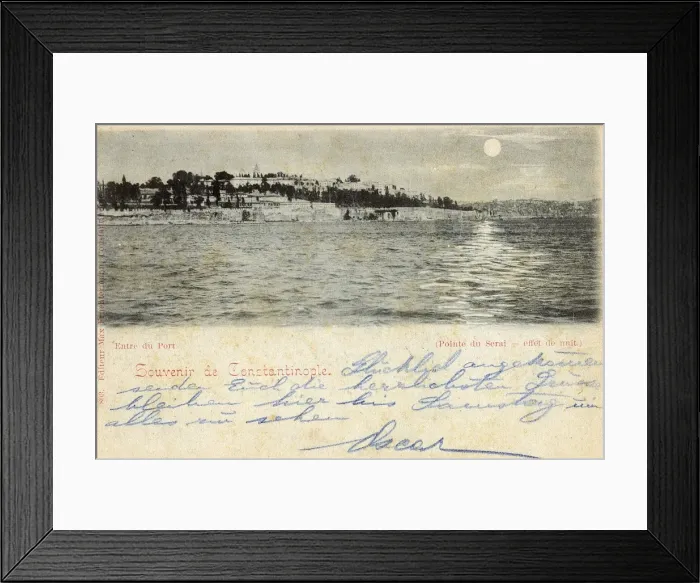 Entre du Port
(Pointe du Seraï - effet de nuit.)
Souvenir de Constantinople.
Glücklich angekommen
senden Euch die herzlichsten Grüsse
bleiben hier bis Samstag um
alles zu sehen
Oscar
Editeur Max